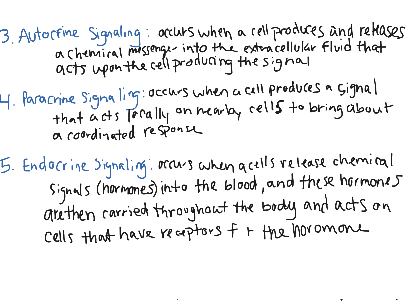 3. Autocrine Signaling: occurs when a cell produces and releases
a chemical messenger into the extracellular fluid that
acts upon the cell producing the signal
4. Paracrine Signaling: occurs when a cell produces a signal
that acts locally on nearby cells to bring about
a coordinated response
5. Endocrine Signaling: occurs when a cells release chemical
signals (hormones) into the blood, and these hormones
are then carried throughout the body and acts on
cells that have receptors f r the horomone